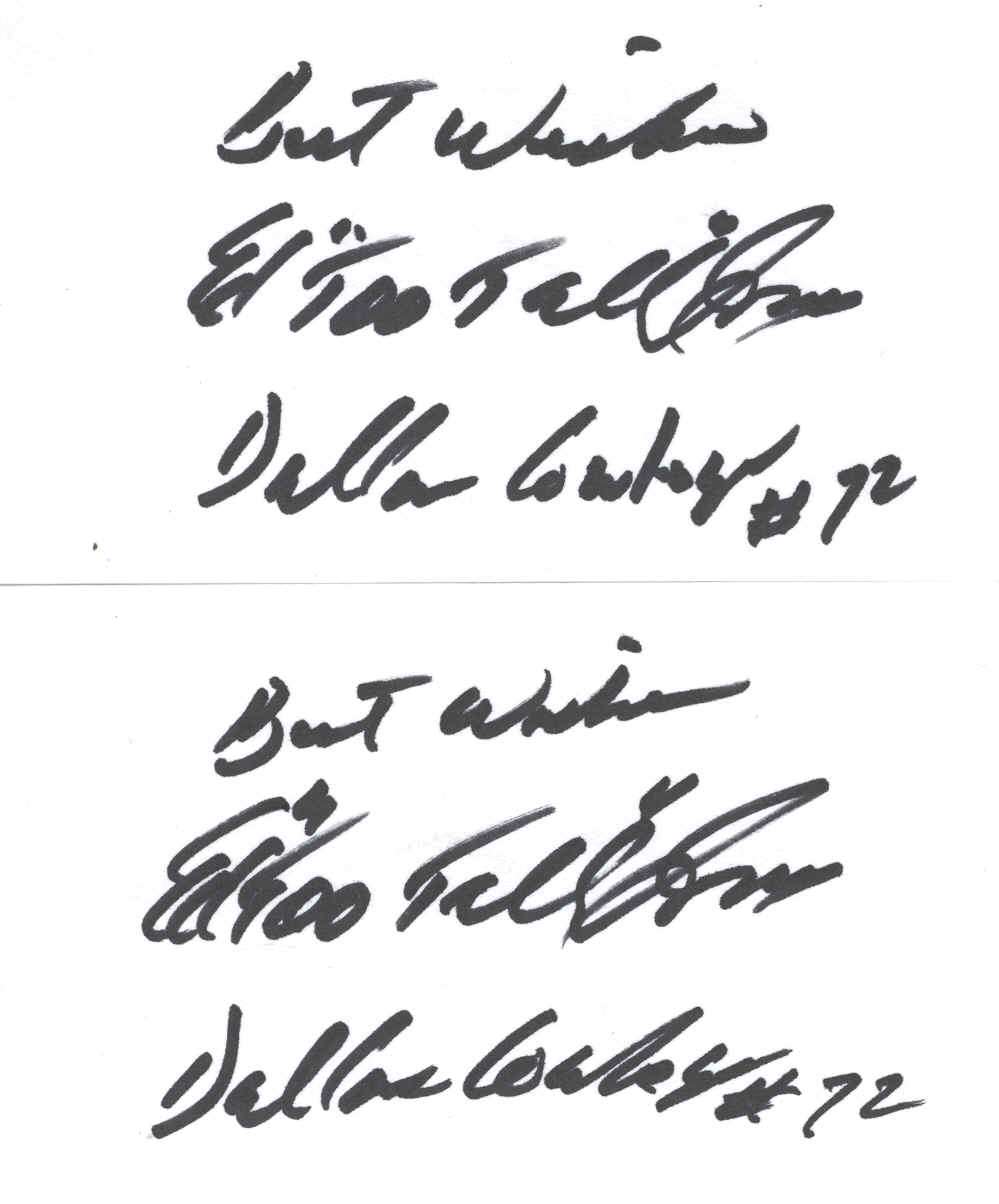 Best Wishes
Ed "Too Tall" Jones
Dallas Cowboys #72
Best Wishes
Ed "Too Tall" Jones
Dallas Cowboys #72